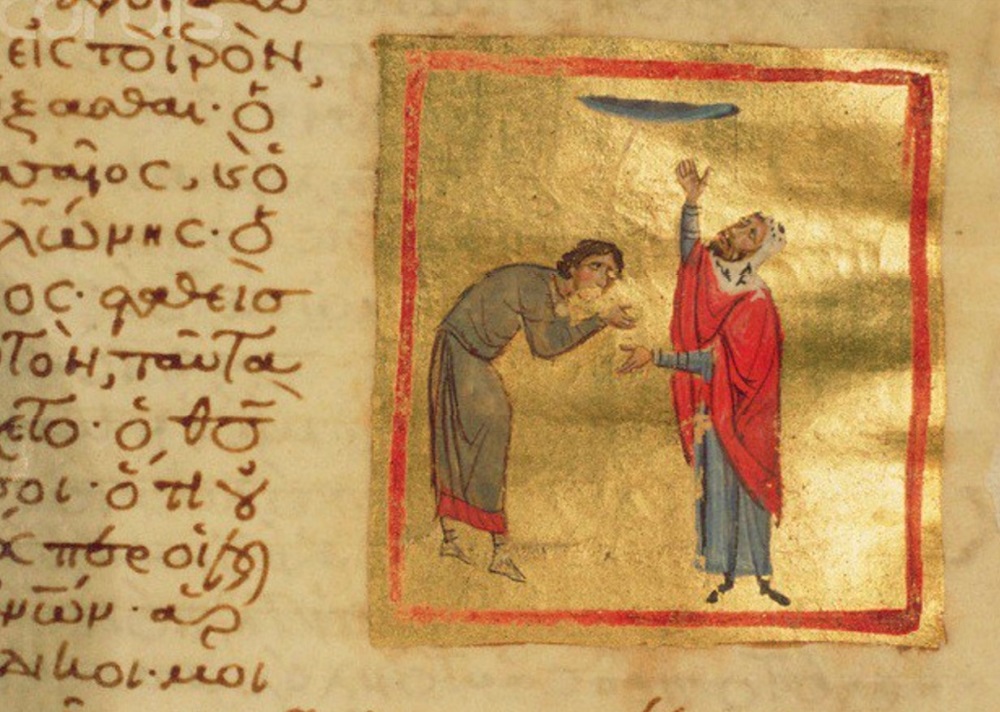 corbis.
εἰς τὸ ἱρὸν,
ξασθαι· ὁ
σαῖος, κὁ
λώνης· ὁ
ος· σταθεὶσ
τὸν, ταῦτα
ετο· ὁ θσ̄
σοι· ὅτι οὐ
περ οἱ
τῶν· ἅρ
δικοι· μοι